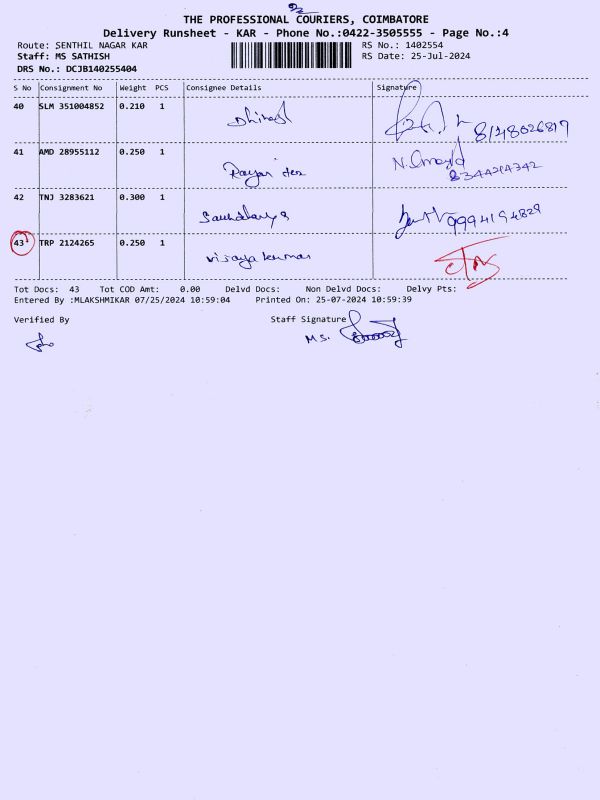 THE PROFESSIONAL COURIERS, COIMBATORE
Delivery Runsheet - KAR - Phone No.:0422-3505555 - Page No.:4
Route: SENTHIL NAGAR KAR RS No.: 1402554
Staff: MS SATHISH RS Date: 25-Jul-2024
DRS No.: DCJB140255404
S No Consignment No Weight PCS Consignee Details Signature
40 SLM 351004852 0.210 1 8148026819
41 AMD 28955112 0.250 1
42 TNJ 3283621 0.300 1 9994194829
43 TRP 2124265 0.250 1 vijaya kumar
Tot Docs: 43 Tot COD Amt: 0.00 Delvd Docs: Non Delvd Docs: Delvy Pts:
Entered By :MLAKSHMIKAR 07/25/2024 10:59:04 Printed On: 25-07-2024 10:59:39
Verified By Staff Signature
M S.